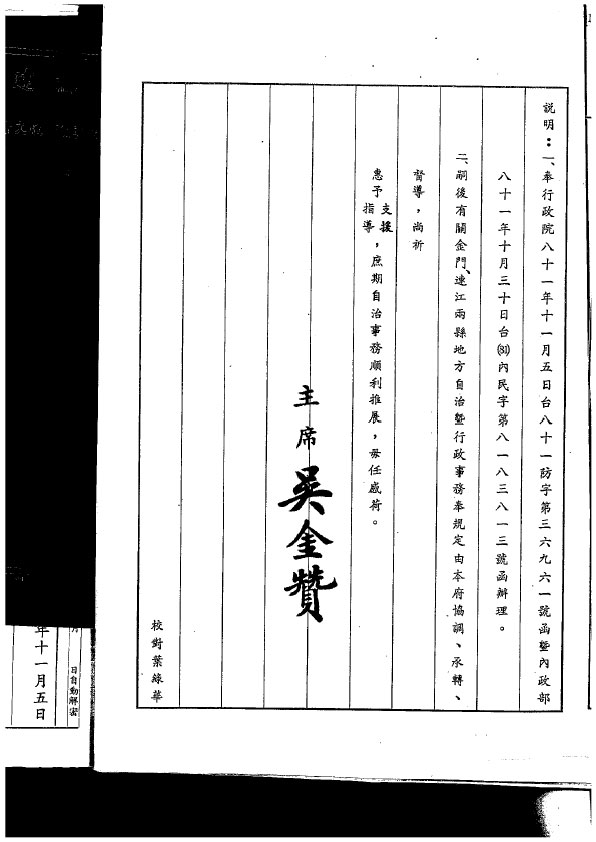 說明：一、奉行政院八十一年十一月五日台八十一防字第三六九六一號函暨內政部
八十一年十月三十日台(81)內民字第八一八三八一三號函辦理。
二、嗣後有關金門、連江兩縣地方自治暨行政事務奉規定由本府協調、承轉、
督導，尚祈
惠予支援指導，庶期自治事務順利推展，毋任感荷。
主席吳金贊
校對葉綠華
日自動解密
年十一月五日